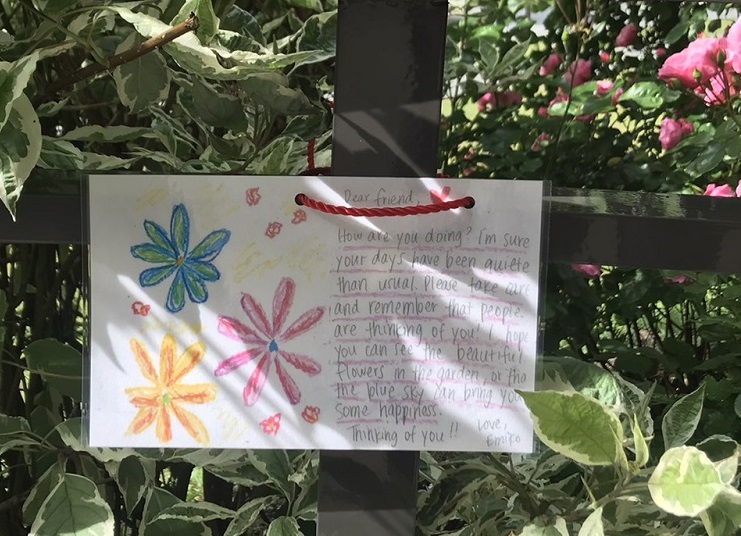 Dear friend,
How are you doing? I'm sure
your days have been quiete
than usual. Please take care
and remember that people
are thinking of you! I hope
you can see the beautiful
flowers in the garden, or tha
the blue sky can bring yo
some happiness.
Thinking of you!!
Love,
Emiko